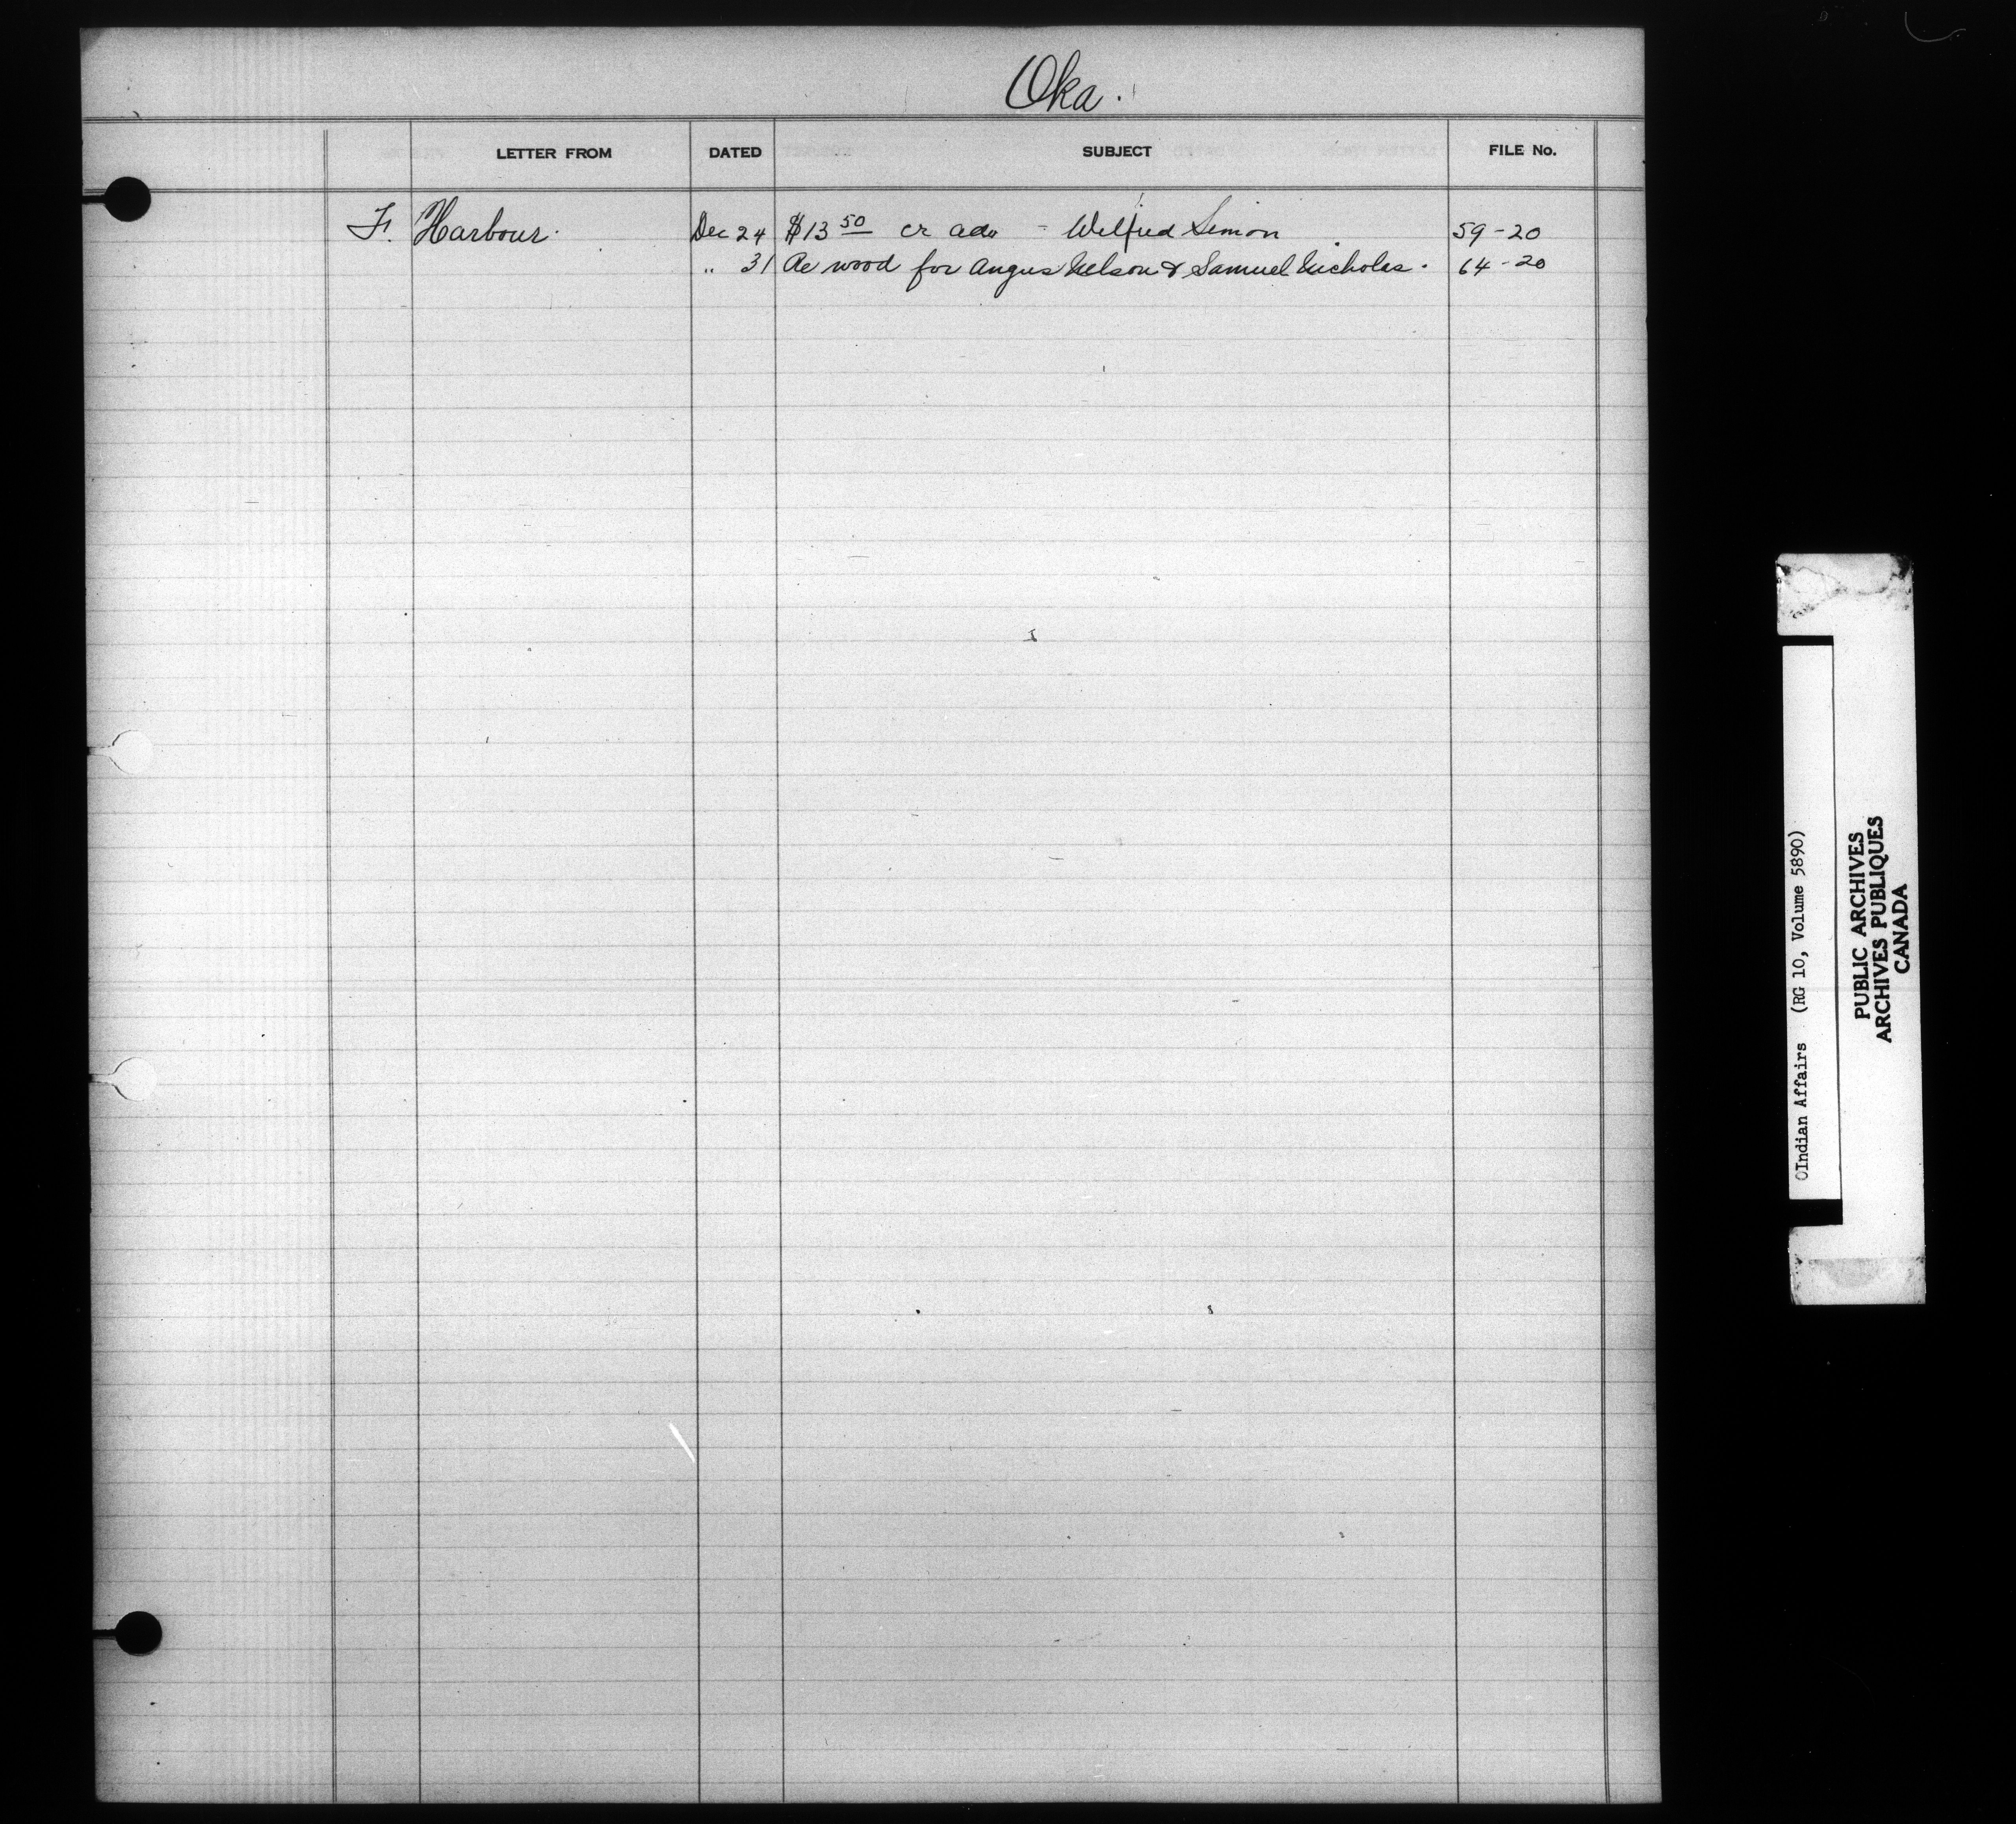 Oka.
LETTER FROM DATED SUBJECT FILE No.
F. Harbour. Dec 24 $13 50 cr adv - Wilfred Simon 59-20
" 31 Re wood for Angus Nelson & Samuel Nicholas. 64-20
Indian Affairs (RG 10, Volume 5890)
PUBLIC ARCHIVES
ARCHIVES PUBLIQUES
CANADA